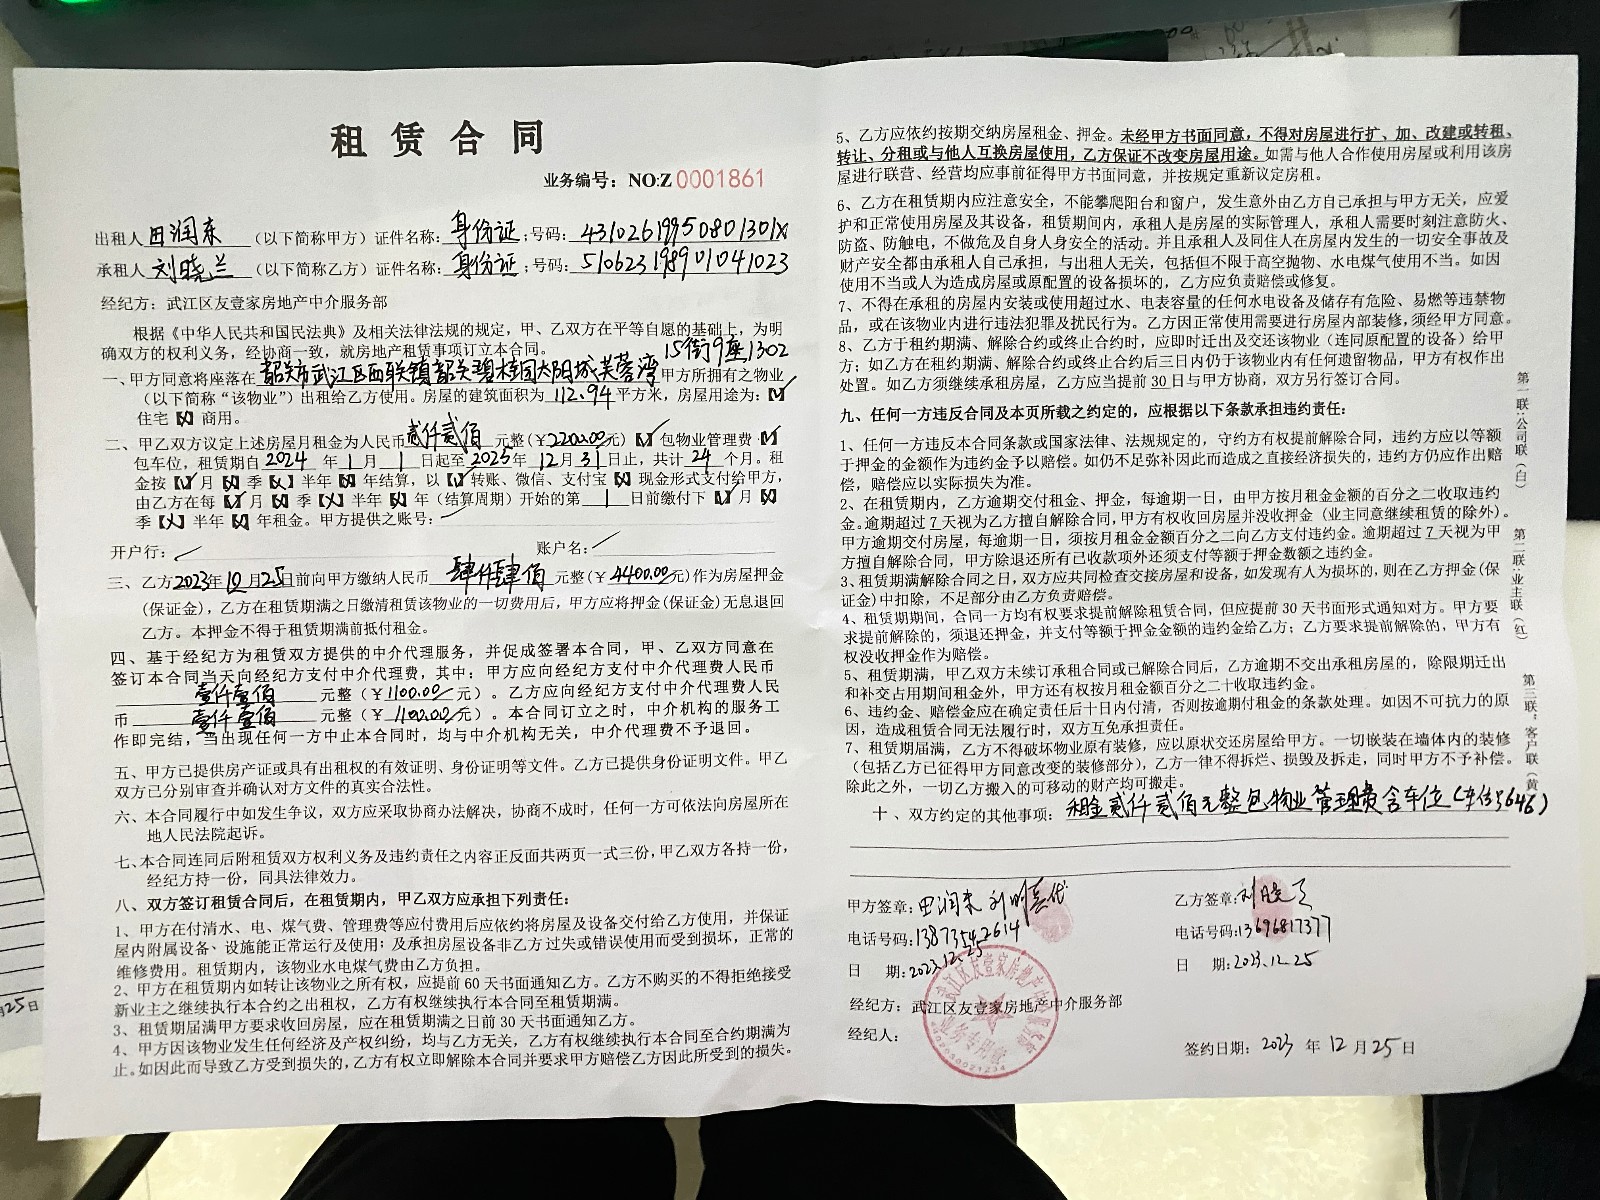 租赁合同
业务编号：NO:Z 0001861
出租人 田润东 （以下简称甲方）证件名称：身份证；号码：43102619950801301X
承租人 刘晓兰 （以下简称乙方）证件名称：身份证；号码：510623198901041023
经纪方：武江区友壹家房地产中介服务部
根据《中华人民共和国民法典》及相关法律法规的规定，甲、乙双方在平等自愿的基础上，为明
确双方的权利义务，经协商一致，就房地产租赁事项订立本合同。 15街9座1302
一、甲方同意将座落在 韶关市武江区西联镇韶关碧桂园太阳城芙蓉湾 甲方所拥有之物业
（以下简称“该物业”）出租给乙方使用。房屋的建筑面积为 112.94 平方米，房屋用途为：【✓】
住宅【X】商用。
二、甲乙双方议定上述房屋月租金为人民币 贰仟贰佰 元整（￥2200.00元）【✓】包物业管理费【✓】
包车位，租赁期自 2024 年 1 月 1 日起至 2025 年 12 月 31 日止，共计 24 个月。租
金按【✓】月【X】季【X】半年【X】年结算，以【✓】转账、微信、支付宝【X】现金形式支付给甲方，
由乙方在每【✓】月【X】季【X】半年【X】年（结算周期）开始的第 1 日前缴付下【✓】月【X】
季【X】半年【X】年租金。甲方提供之账号：
开户行： 账户名：
三、乙方2023年12月25日前向甲方缴纳人民币 肆仟肆佰 元整（￥4400.00元）作为房屋押金
（保证金），乙方在租赁期满之日缴清租赁该物业的一切费用后，甲方应将押金（保证金）无息退回
乙方。本押金不得于租赁期满前抵付租金。
四、基于经纪方为租赁双方提供的中介代理服务，并促成签署本合同，甲、乙双方同意在
签订本合同当天向经纪方支付中介代理费，其中：甲方应向经纪方支付中介代理费人民币
壹仟壹佰 元整（￥1100.00元）。乙方应向经纪方支付中介代理费人民
币 壹仟壹佰 元整（￥1100.00元）。本合同订立之时，中介机构的服务工
作即完结，当出现任何一方中止本合同时，均与中介机构无关，中介代理费不予退回。
五、甲方已提供房产证或具有出租权的有效证明、身份证明等文件。乙方已提供身份证明文件。甲乙
双方已分别审查并确认对方文件的真实合法性。
六、本合同履行中如发生争议，双方应采取协商办法解决，协商不成时，任何一方可依法向房屋所在
地人民法院起诉。
七、本合同连同后附租赁双方权利义务及违约责任之内容正反面共两页一式三份，甲乙双方各持一份，
经纪方持一份，同具法律效力。
八、双方签订租赁合同后，在租赁期内，甲乙双方应承担下列责任：
1、甲方在付清水、电、煤气费、管理费等应付费用后应依约将房屋及设备交付给乙方使用，并保证
屋内附属设备、设施能正常运行及使用；及承担房屋设备非乙方过失或错误使用而受到损坏，正常的
维修费用。租赁期内，该物业水电煤气费由乙方负担。
2、甲方在租赁期内如转让该物业之所有权，应提前60天书面通知乙方。乙方不购买的不得拒绝接受
新业主之继续执行本合约之出租权，乙方有权继续执行本合同至租赁期满。
3、租赁期届满甲方要求收回房屋，应在租赁期满之日前30天书面通知乙方。
4、甲方因该物业发生任何经济及产权纠纷，均与乙方无关，乙方有权继续执行本合同至合约期满为
止。如因此而导致乙方受到损失的，乙方有权立即解除本合同并要求甲方赔偿乙方因此所受到的损失。
5、乙方应依约按期交纳房屋租金、押金。未经甲方书面同意，不得对房屋进行扩、加、改建或转租、
转让、分租或与他人互换房屋使用，乙方保证不改变房屋用途。如需与他人合作使用房屋或利用该房
屋进行联营、经营均应事前征得甲方书面同意，并按规定重新议定房租。
6、乙方在租赁期内应注意安全，不能攀爬阳台和窗户，发生意外由乙方自己承担与甲方无关，应爱
护和正常使用房屋及其设备，租赁期间内，承租人是房屋的实际管理人，承租人需要时刻注意防火、
防盗、防触电，不做危及自身人身安全的活动。并且承租人及同住人在房屋内发生的一切安全事故及
财产安全都由承租人自己承担，与出租人无关，包括但不限于高空抛物、水电煤气使用不当。如因
使用不当或人为造成房屋或原配置的设备损坏的，乙方应负责赔偿或修复。
7、不得在承租的房屋内安装或使用超过水、电表容量的任何水电设备及储存有危险、易燃等违禁物
品，或在该物业内进行违法犯罪及扰民行为。乙方因正常使用需要进行房屋内部装修，须经甲方同意。
8、乙方于租约期满、解除合约或终止合约时，应即时迁出及交还该物业（连同原配置的设备）给甲
方；如乙方在租约期满、解除合约或终止合约后三日内仍于该物业内有任何遗留物品，甲方有权作出
处置。如乙方须继续承租房屋，乙方应当提前30日与甲方协商，双方另行签订合同。
九、任何一方违反合同及本页所载之约定的，应根据以下条款承担违约责任：
1、任何一方违反本合同条款或国家法律、法规规定的，守约方有权提前解除合同，违约方应以等额
于押金的金额作为违约金予以赔偿。如仍不足弥补因此而造成之直接经济损失的，违约方仍应作出赔
偿，赔偿应以实际损失为准。
2、在租赁期内，乙方逾期交付租金、押金，每逾期一日，由甲方按月租金金额的百分之二收取违约
金。逾期超过7天视为乙方擅自解除合同，甲方有权收回房屋并没收押金（业主同意继续租赁的除外）。
甲方逾期交付房屋，每逾期一日，须按月租金金额百分之二向乙方支付违约金。逾期超过7天视为甲
方擅自解除合同，甲方除退还所有已收款项外还须支付等额于押金数额之违约金。
3、租赁期满解除合同之日，双方应共同检查交接房屋和设备，如发现有人为损坏的，则在乙方押金（保
证金）中扣除，不足部分由乙方负责赔偿。
4、租赁期期间，合同一方均有权要求提前解除租赁合同，但应提前30天书面形式通知对方。甲方要
求提前解除的，须退还押金，并支付等额于押金金额的违约金给乙方；乙方要求提前解除的，甲方有
权没收押金作为赔偿。
5、租赁期满，甲乙双方未续订承租合同或已解除合同后，乙方逾期不交出承租房屋的，除限期迁出
和补交占用期间租金外，甲方还有权按月租金额百分之二十收取违约金。
6、违约金、赔偿金应在确定责任后十日内付清，否则按逾期付租金的条款处理。如因不可抗力的原
因，造成租赁合同无法履行时，双方互免承担责任。
7、租赁期届满，乙方不得破坏物业原有装修，应以原状交还房屋给甲方。一切嵌装在墙体内的装修
（包括乙方已征得甲方同意改变的装修部分），乙方一律不得拆烂、损毁及拆走，同时甲方不予补偿。
除此之外，一切乙方搬入的可移动的财产均可搬走。
十、双方约定的其他事项：租金贰仟贰佰元整包物业管理费含车位（车位号646）
甲方签章：田润东 刘明 代
乙方签章：刘晓兰
电话号码：13873542614
电话号码：13696817377
日 期：2023.12.25
日 期：2023.12.25
经纪方：武江区友壹家房地产中介服务部
经纪人：
签约日期：2023 年 12 月 25 日
武江区友壹家房地产中介服务部
业务专用章
第一联：公司联（白）
第二联：业主联（红）
第三联：客户联（黄）
月25日